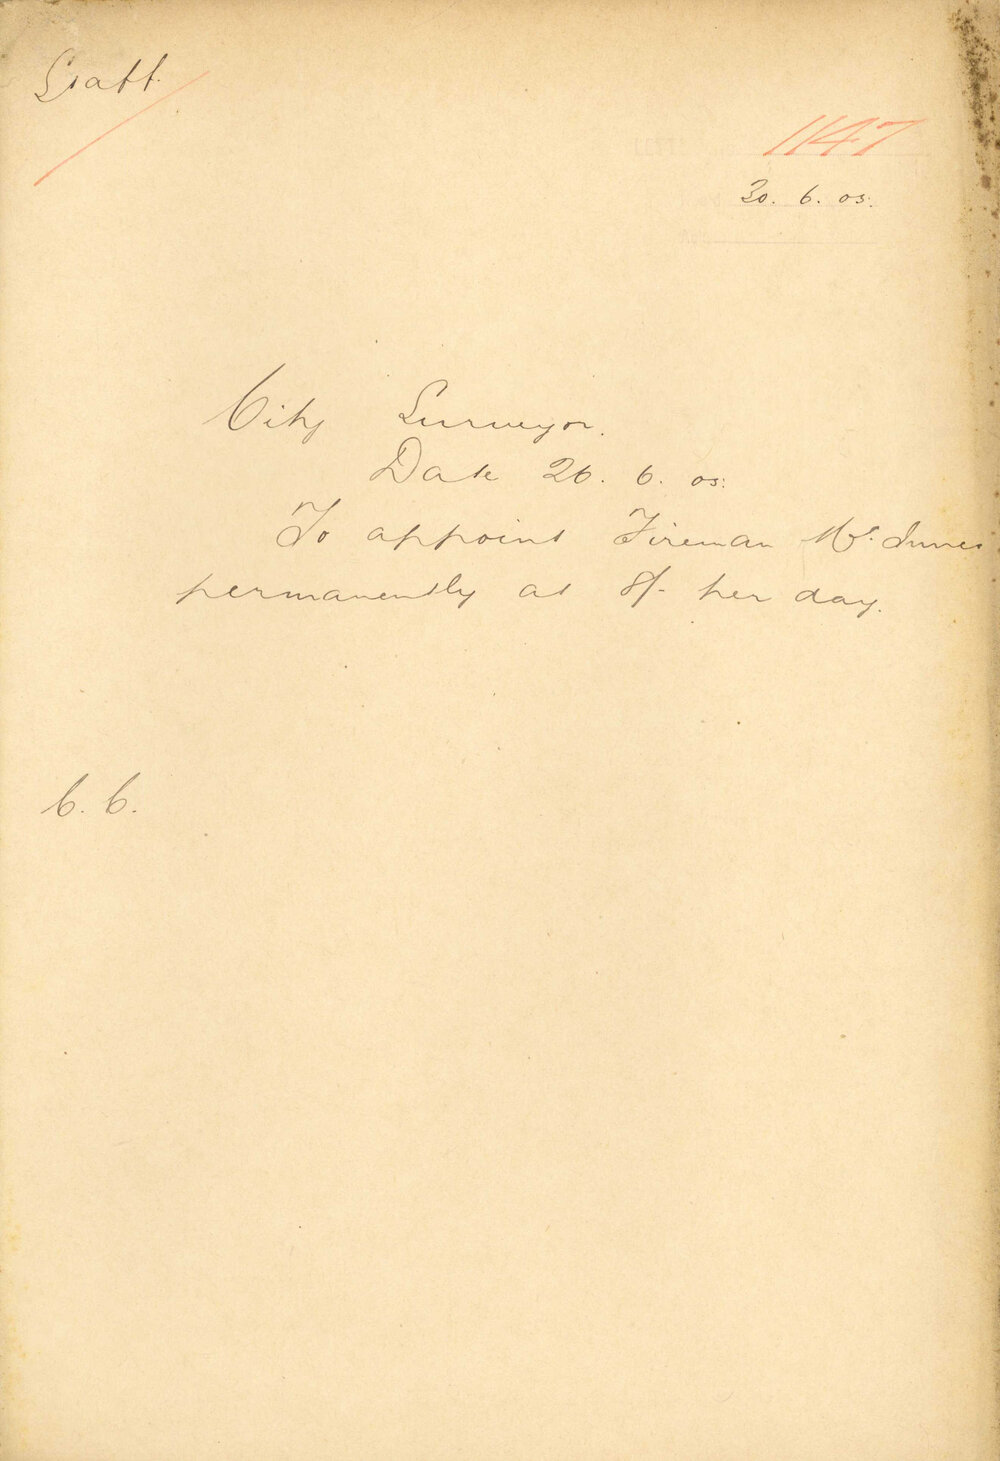 Staff.
1147
30. 6. 05.
City Surveyor.
Date 26. 6. 05.
To appoint Fireman McInnes
permanently at 8/- per day.
C. C.